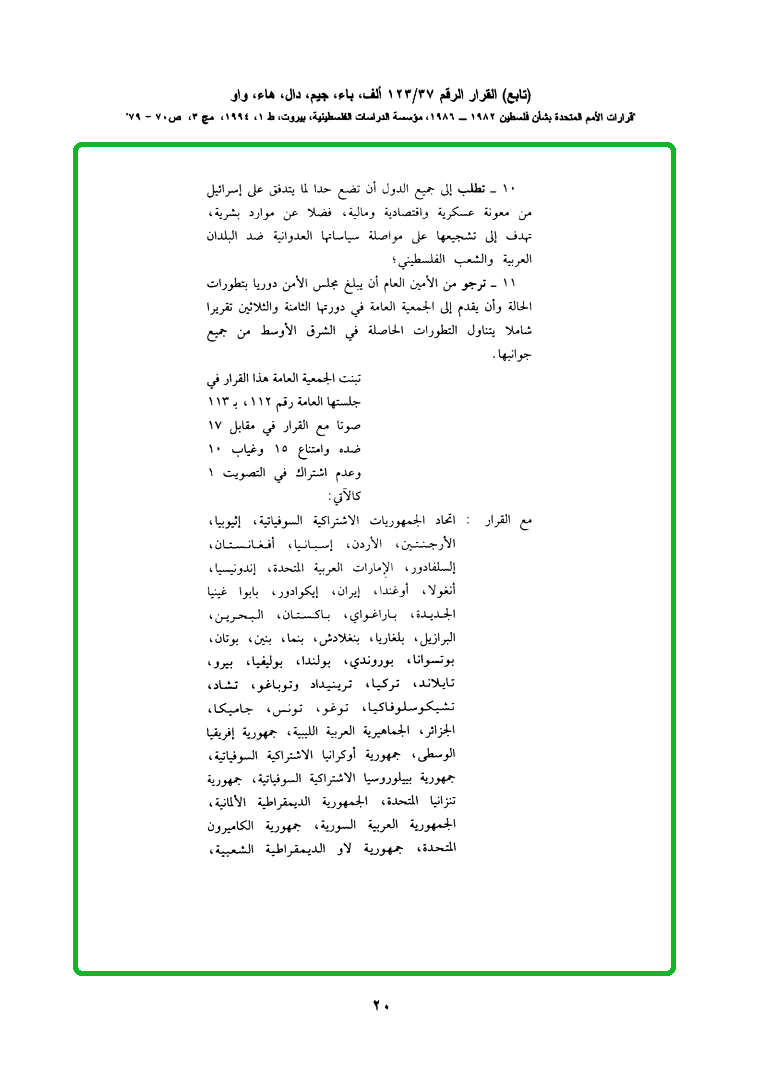 (تابع) القرار الرقم ١٢٣/٣٧ ألف، باء، جيم، دال، هاء، واو
"قرارات الأمم المتحدة بشأن فلسطين ١٩٨٢ ـ ١٩٨٦، مؤسسة الدراسات الفلسطينية، بيروت، ط ١، ١٩٩٤، مج ٣، ص٧٠ - ٧٩"
١٠ ـ تطلب إلى جميع الدول أن تضع حدا لما يتدفق على إسرائيل
من معونة عسكرية واقتصادية ومالية، فضلا عن موارد بشرية،
تهدف إلى تشجيعها على مواصلة سياساتها العدوانية ضد البلدان
العربية والشعب الفلسطيني؛
١١ ـ ترجو من الأمين العام أن يبلغ مجلس الأمن دوريا بتطورات
الحالة وأن يقدم إلى الجمعية العامة في دورتها الثامنة والثلاثين تقريرا
شاملا يتناول التطورات الحاصلة في الشرق الأوسط من جميع
جوانبها.
تبنت الجمعية العامة هذا القرار في
جلستها العامة رقم ١١٢، بـ ١١٣
صوتا مع القرار في مقابل ١٧
ضده وامتناع ١٥ وغياب ١٠
وعدم اشتراك في التصويت ١
كالآتي:
مع القرار : اتحاد الجمهوريات الاشتراكية السوفياتية، إثيوبيا،
الأرجنتين، الأردن، إسبانيا، أفغانستان،
إلسلفادور، الإمارات العربية المتحدة، إندونيسيا،
أنغولا، أوغندا، إيران، إيكوادور، بابوا غينيا
الجديدة، باراغواي، باكستان، البحرين،
البرازيل، بلغاريا، بنغلادش، بنما، بنين، بوتان،
بوتسوانا، بوروندي، بولندا، بوليفيا، بيرو،
تايلاند، تركيا، ترينيداد وتوباغو، تشاد،
تشيكوسلوفاكيا، توغو، تونس، جاميكا،
الجزائر، الجماهيرية العربية الليبية، جمهورية إفريقيا
الوسطى، جمهورية أوكرانيا الاشتراكية السوفياتية،
جمهورية بييلوروسيا الاشتراكية السوفياتية، جمهورية
تنزانيا المتحدة، الجمهورية الديمقراطية الألمانية،
الجمهورية العربية السورية، جمهورية الكاميرون
المتحدة، جمهورية لاو الديمقراطية الشعبية،
٢٠